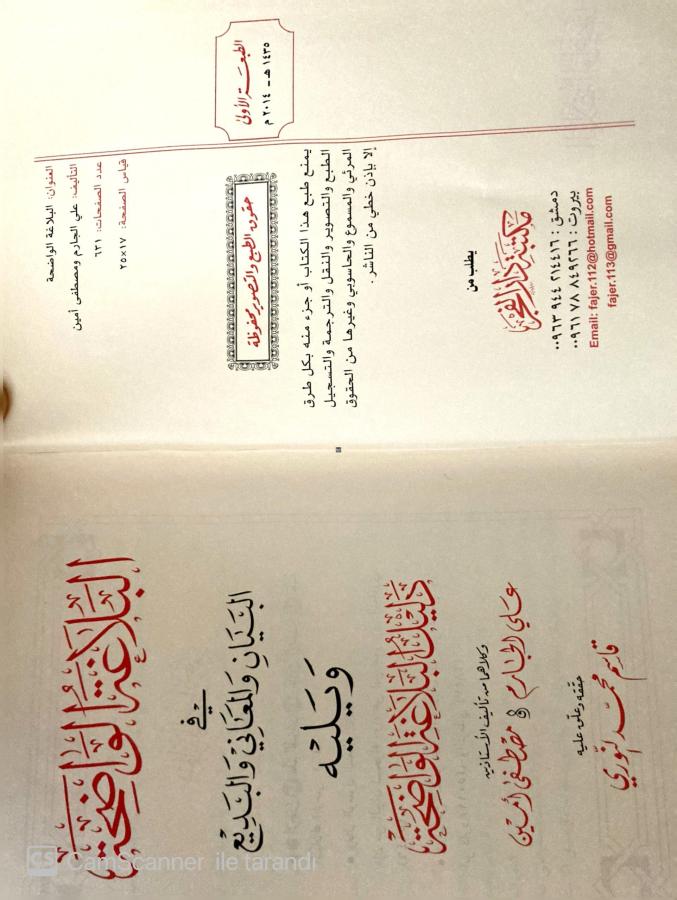 العنوان: البلاغة الواضحة
التأليف: علي الجارم ومصطفى أمين
عدد الصفحات: ٦٣١
قياس الصفحة: ١٧×٢٥
الطبعة الأولى
١٤٣٥ هـ ـ ٢٠١٤ م
حقوق الطبع والتصوير محفوظة
يمنع طبع هذا الكتاب أو جزء منه بكل طرق
الطبع والتصوير والنقل والترجمة والتسجيل
المرئي والمسموع والحاسوبي وغيرها من الحقوق
إلا بإذن خطي من الناشر.
يطلب من
مكتبة دار الفجر
دمشق : ٢١٤٤١٦ ٩٤٤ ٠٠٩٦٣
بيروت : ٨٤٩٢٦٦ ٧٨ ٠٠٩٦١
Email: fajer.112@hotmail.com
fajer.113@gmail.com
البلاغة الواضحة
في
البيان والمعاني والبديع
ويليه
دليل البلاغة الواضحة
وكلاهما من تأليف الأستاذين
علي الجارم و مصطفى أمين
حققه وعلق عليه
قاسم محمد النوري
CS CamScanner ile tarandı